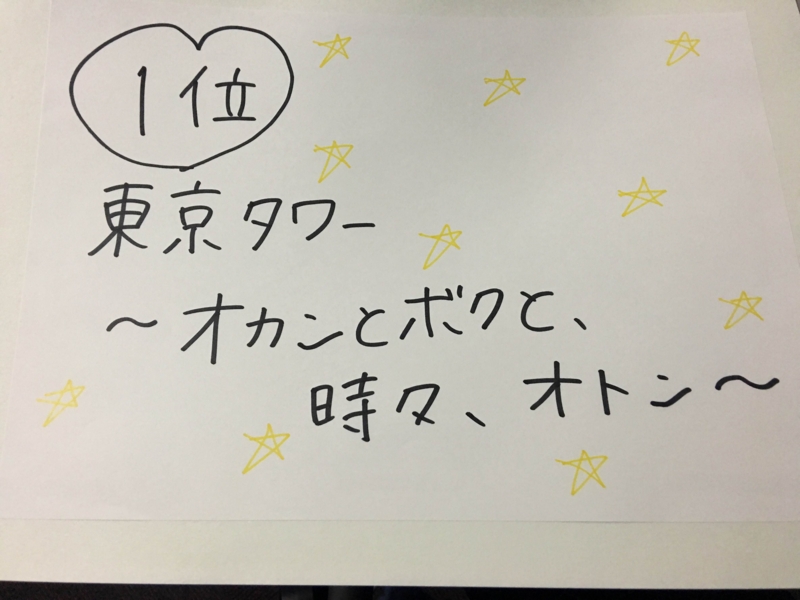 1位
東京タワー
～オカンとボクと、
時々、オトン～